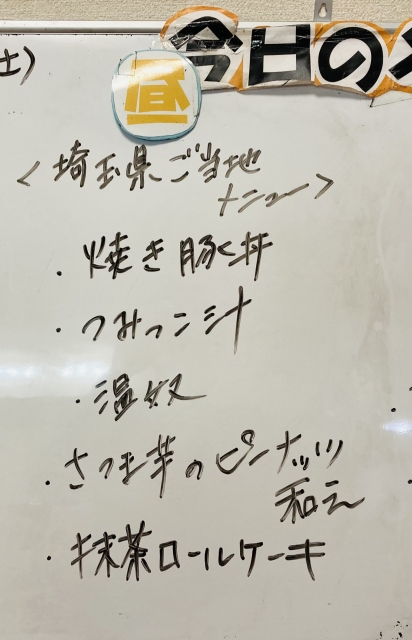 土)
今日の
昼
<埼玉県ご当地
メニュー>
・焼き豚丼
・つみっこ汁
・温奴
・さつま芋のピーナッツ
和え
・抹茶ロールケーキ